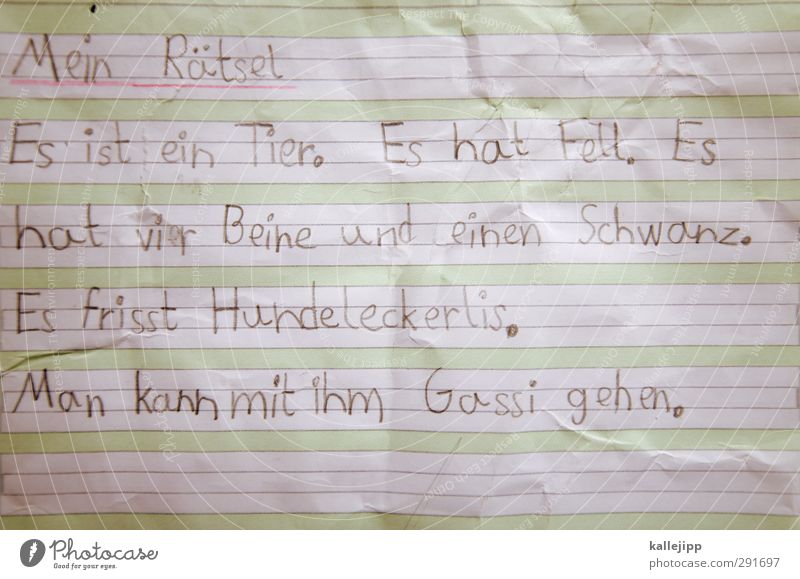 Mein Rätsel
Es ist ein Tier. Es hat Fell. Es
hat vier Beine und einen Schwanz.
Es frisst Hundeleckerlis.
Man kann mit ihm Gassi gehen.
Photocase
Good for your eyes.
kallejipp
#291697